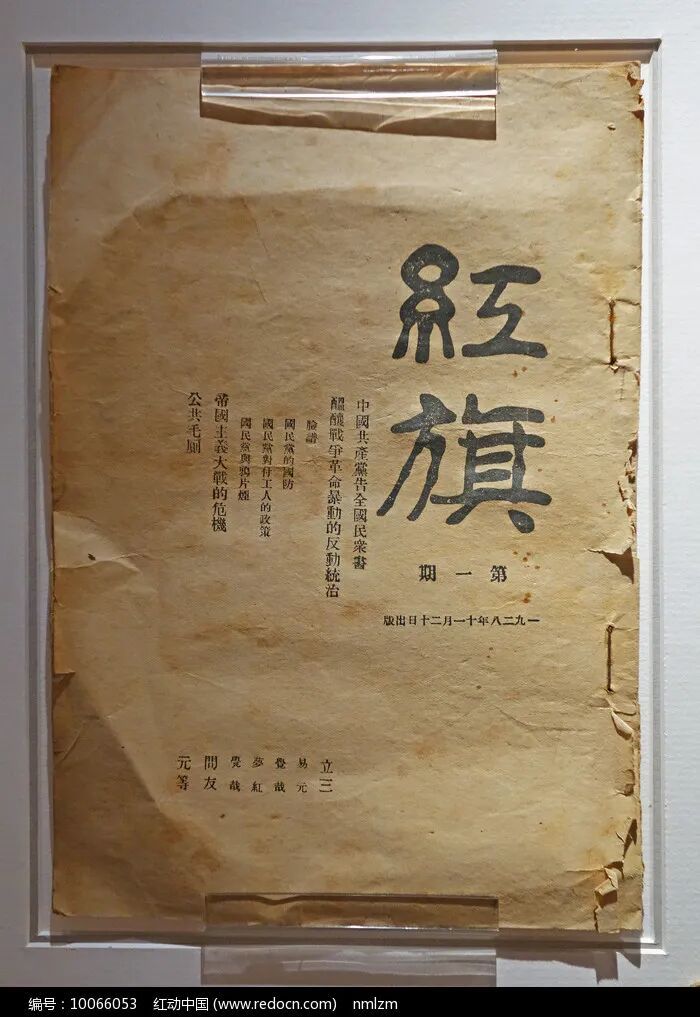 紅旗
第一期
一九二八年十一月二十日出版
中國共產黨告全國民衆書
醞釀戰爭革命暴動的反動統治 立三
臉譜 易元
國民黨的國防 覺哉
國民黨對付工人的政策 夢紅
國民黨與鴉片煙 覺哉
帝國主義大戰的危機 問友
公共毛廁 元等
编号：10066053 红动中国 (www.redocn.com) nmlzm